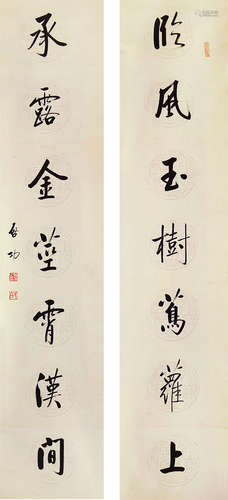 臨風玉樹蔦蘿上
承露金莖霄漢間
啓功